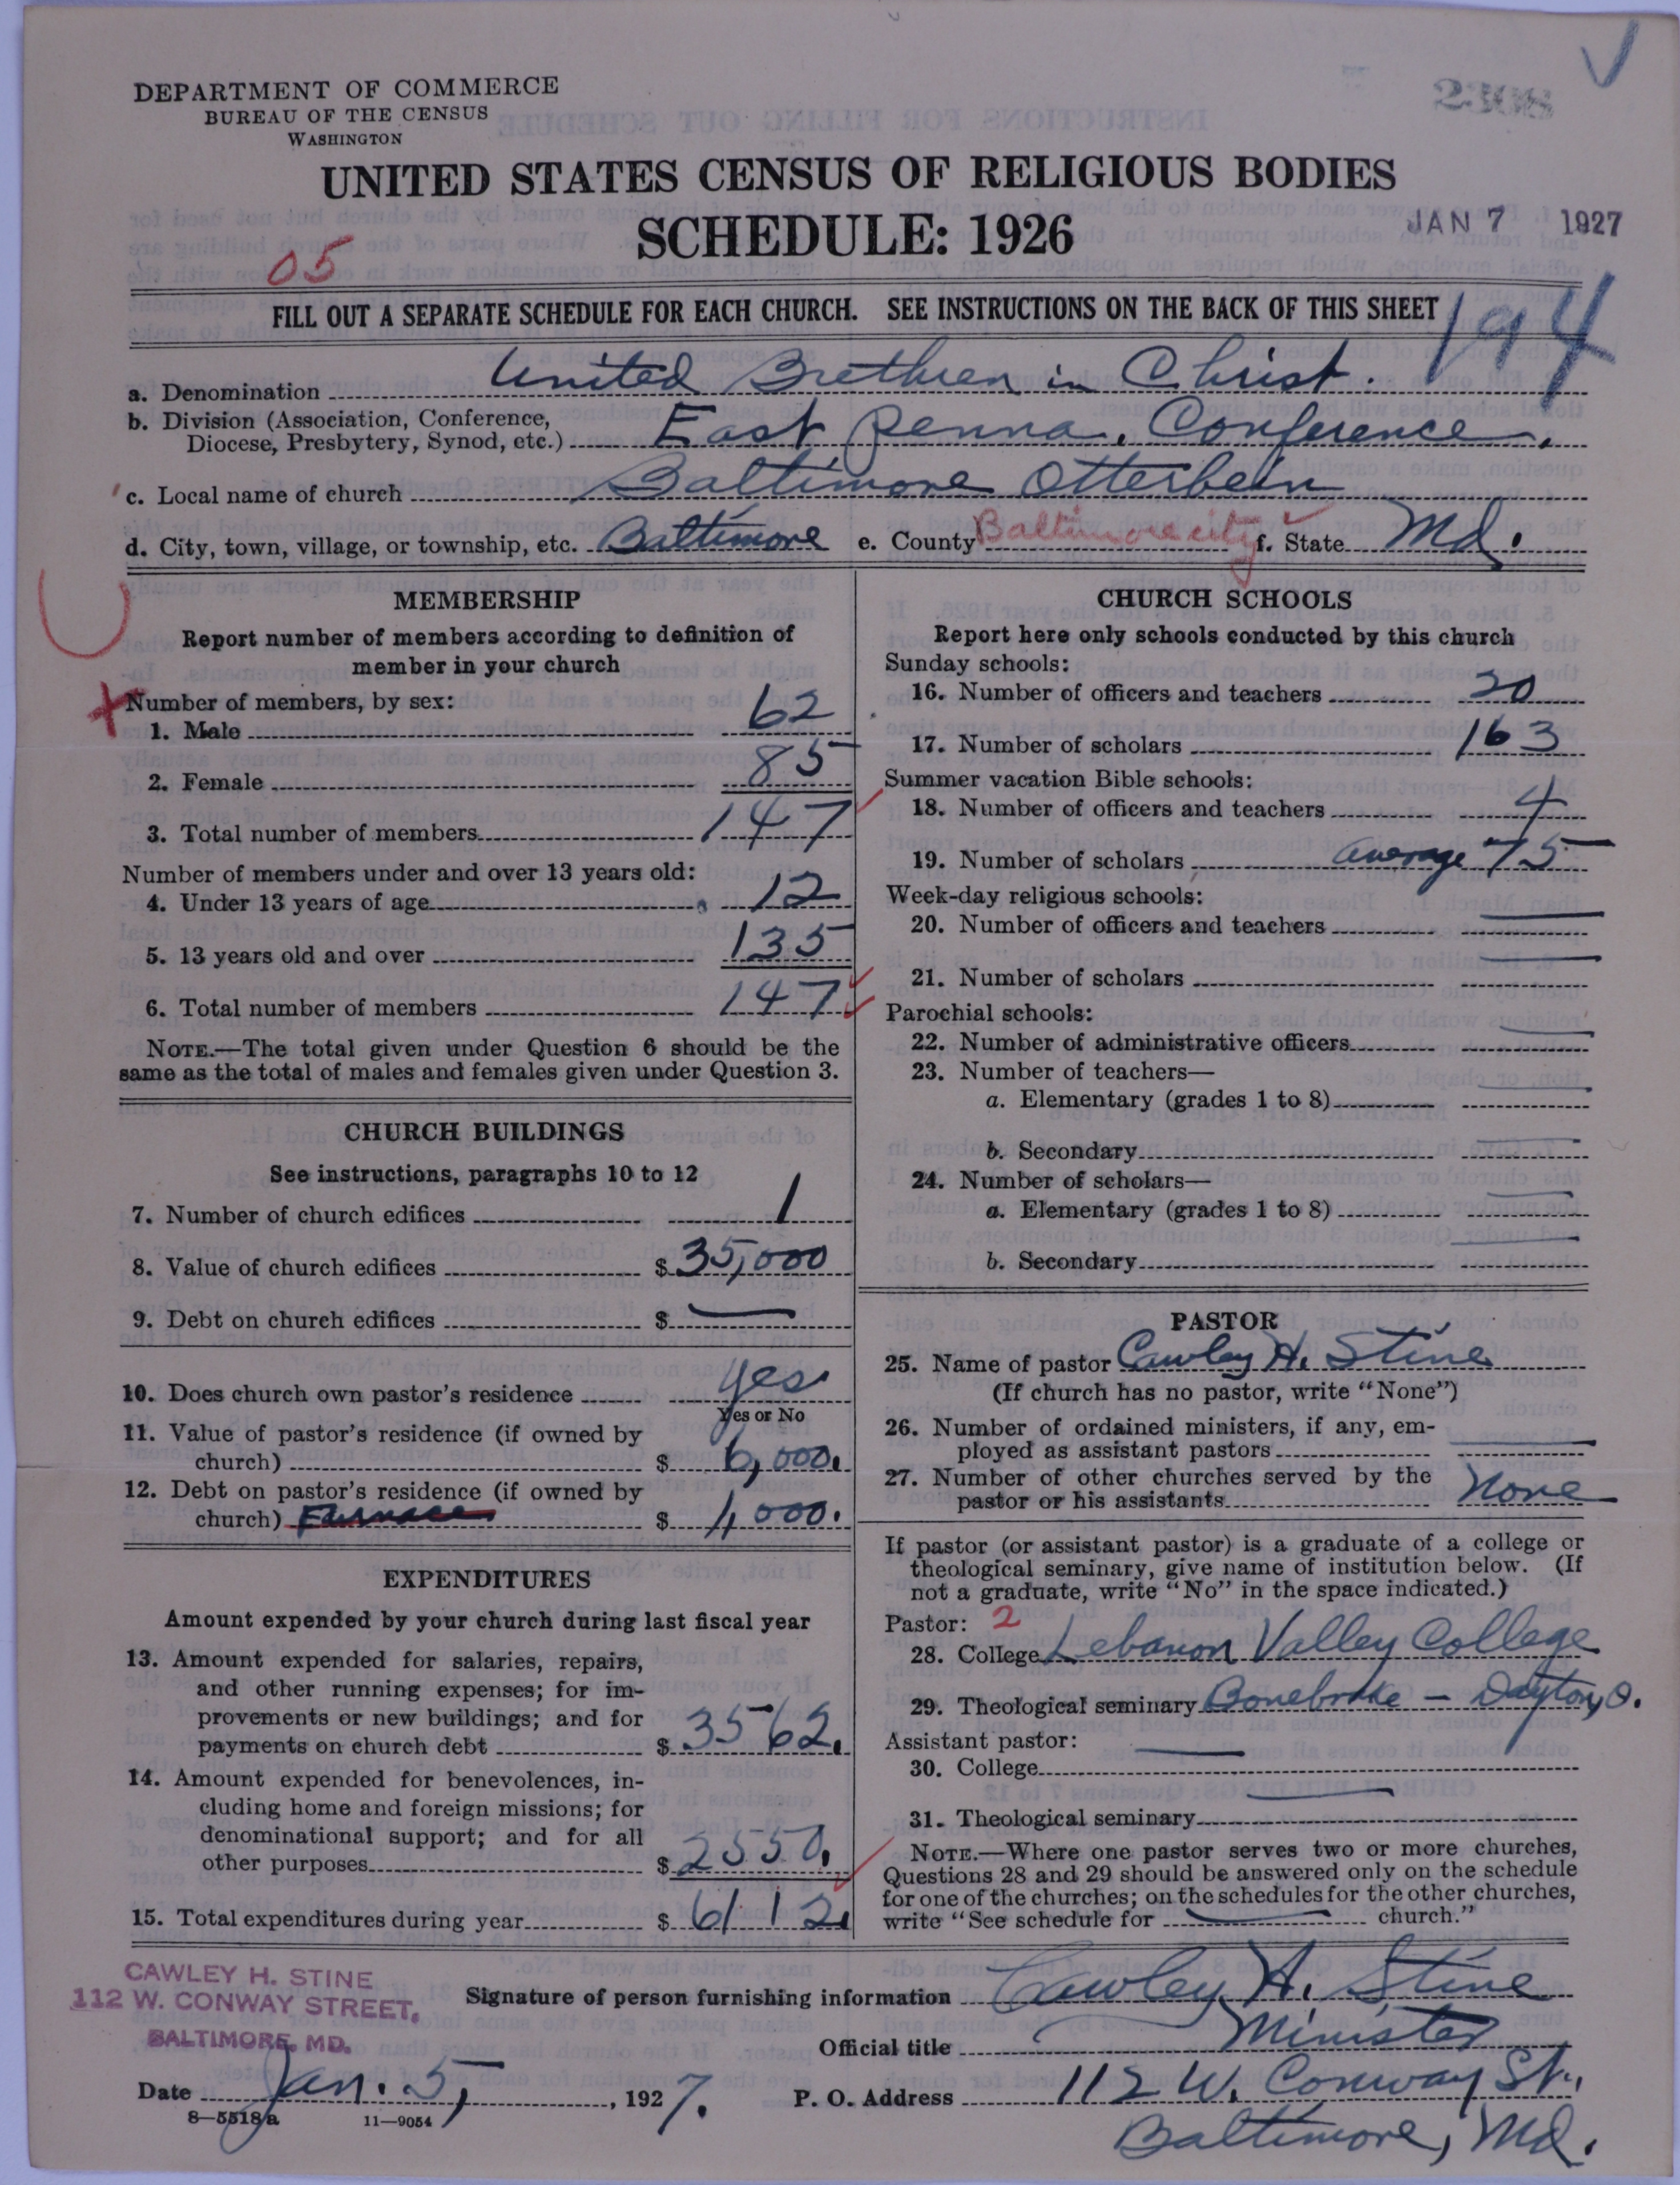 DEPARTMENT OF COMMERCE
BUREAU OF THE CENSUS
WASHINGTON
UNITED STATES CENSUS OF RELIGIOUS BODIES
SCHEDULE: 1926
JAN 7 1927
05
FILL OUT A SEPARATE SCHEDULE FOR EACH CHURCH. SEE INSTRUCTIONS ON THE BACK OF THIS SHEET
194
a. Denomination United Brethren in Christ.
b. Division (Association, Conference,
Diocese, Presbytery, Synod, etc.) East Penna. Conference.
c. Local name of church Baltimore Otterbein
d. City, town, village, or township, etc. Baltimore e. County Baltimore city f. State Md.
MEMBERSHIP
Report number of members according to definition of
member in your church
Number of members, by sex:
1. Male 62
2. Female 85
3. Total number of members 147
Number of members under and over 13 years old:
4. Under 13 years of age 12
5. 13 years old and over 135
6. Total number of members 147
NOTE.—The total given under Question 6 should be the
same as the total of males and females given under Question 3.
CHURCH BUILDINGS
See instructions, paragraphs 10 to 12
7. Number of church edifices 1
8. Value of church edifices $ 35,000
9. Debt on church edifices $ —
10. Does church own pastor's residence yes
Yes or No
11. Value of pastor's residence (if owned by
church) $ 6,000.
12. Debt on pastor's residence (if owned by
church) Furnace $ 1,000.
EXPENDITURES
Amount expended by your church during last fiscal year
13. Amount expended for salaries, repairs,
and other running expenses; for im-
provements or new buildings; and for
payments on church debt $ 3562.
14. Amount expended for benevolences, in-
cluding home and foreign missions; for
denominational support; and for all
other purposes $ 2550.
15. Total expenditures during year $ 6112.
CHURCH SCHOOLS
Report here only schools conducted by this church
Sunday schools:
16. Number of officers and teachers 20
17. Number of scholars 163
Summer vacation Bible schools:
18. Number of officers and teachers 4
19. Number of scholars average 75
Week-day religious schools:
20. Number of officers and teachers —
21. Number of scholars —
Parochial schools:
22. Number of administrative officers —
23. Number of teachers—
a. Elementary (grades 1 to 8) —
b. Secondary —
24. Number of scholars—
a. Elementary (grades 1 to 8) —
b. Secondary —
PASTOR
25. Name of pastor Cawley H. Stine
(If church has no pastor, write "None")
26. Number of ordained ministers, if any, em-
ployed as assistant pastors —
27. Number of other churches served by the
pastor or his assistants None
If pastor (or assistant pastor) is a graduate of a college or
theological seminary, give name of institution below. (If
not a graduate, write "No" in the space indicated.)
Pastor: 2
28. College Lebanon Valley College
29. Theological seminary Bonebrake — Dayton, O.
Assistant pastor:
30. College —
31. Theological seminary —
NOTE.—Where one pastor serves two or more churches,
Questions 28 and 29 should be answered only on the schedule
for one of the churches; on the schedules for the other churches,
write "See schedule for — church."
CAWLEY H. STINE
112 W. CONWAY STREET,
BALTIMORE, MD.
Signature of person furnishing information Cawley H. Stine
Official title Minister
Date Jan. 5, 1927. P. O. Address 112 W. Conway St.,
Baltimore, Md.
8—5518a 11—9054